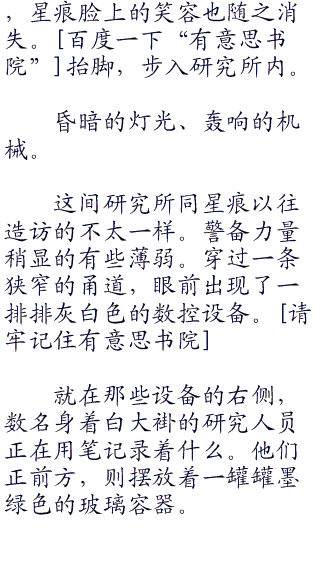 ，星痕脸上的笑容也随之消
失。[百度一下“有意思书
院”]抬脚，步入研究所内。
昏暗的灯光、轰响的机
械。
这间研究所同星痕以往
造访的不太一样。警备力量
稍显的有些薄弱。穿过一条
狭窄的甬道，眼前出现了一
排排灰白色的数控设备。[请
牢记住有意思书院]
就在那些设备的右侧，
数名身着白大褂的研究人员
正在用笔记录着什么。他们
正前方，则摆放着一罐罐墨
绿色的玻璃容器。